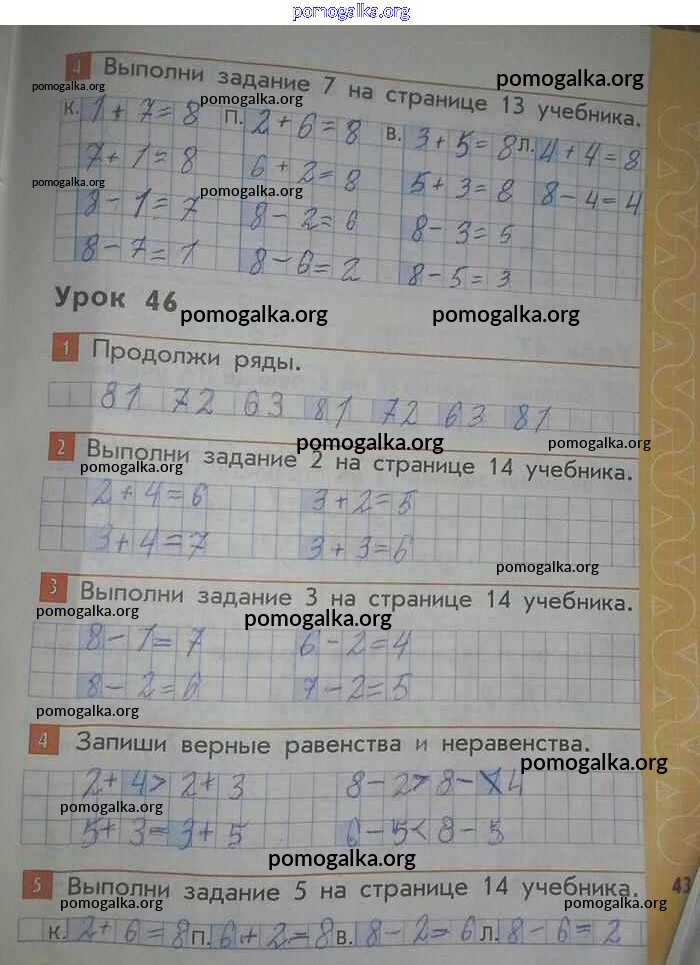 pomogalka.org
4 Выполни задание 7 на странице 13 учебника.
pomogalka.org
pomogalka.org pomogalka.org
к. 1+7=8 п. 2+6=8 в. 3+5=8 л. 4+4=8
7+1=8 6+2=8 5+3=8 8-4=4
pomogalka.org pomogalka.org
8-1=7 8-2=6 8-3=5
8-7=1 8-6=2 8-5=3
Урок 46
pomogalka.org pomogalka.org
1 Продолжи ряды.
81 72 63 81 72 63 81
pomogalka.org pomogalka.org
2 Выполни задание 2 на странице 14 учебника.
pomogalka.org
2+4=6 3+2=5
3+4=7 3+3=6
pomogalka.org
3 Выполни задание 3 на странице 14 учебника.
pomogalka.org pomogalka.org
8-1=7 6-2=4
8-2=6 7-2=5
pomogalka.org
4 Запиши верные равенства и неравенства.
pomogalka.org
2+4>2+3 8-2>8-4
pomogalka.org
5+3=3+5 6-5<8-5
pomogalka.org
5 Выполни задание 5 на странице 14 учебника. 43
pomogalka.org pomogalka.org
к. 2+6=8 п. 6+2=8 в. 8-2=6 л. 8-6=2